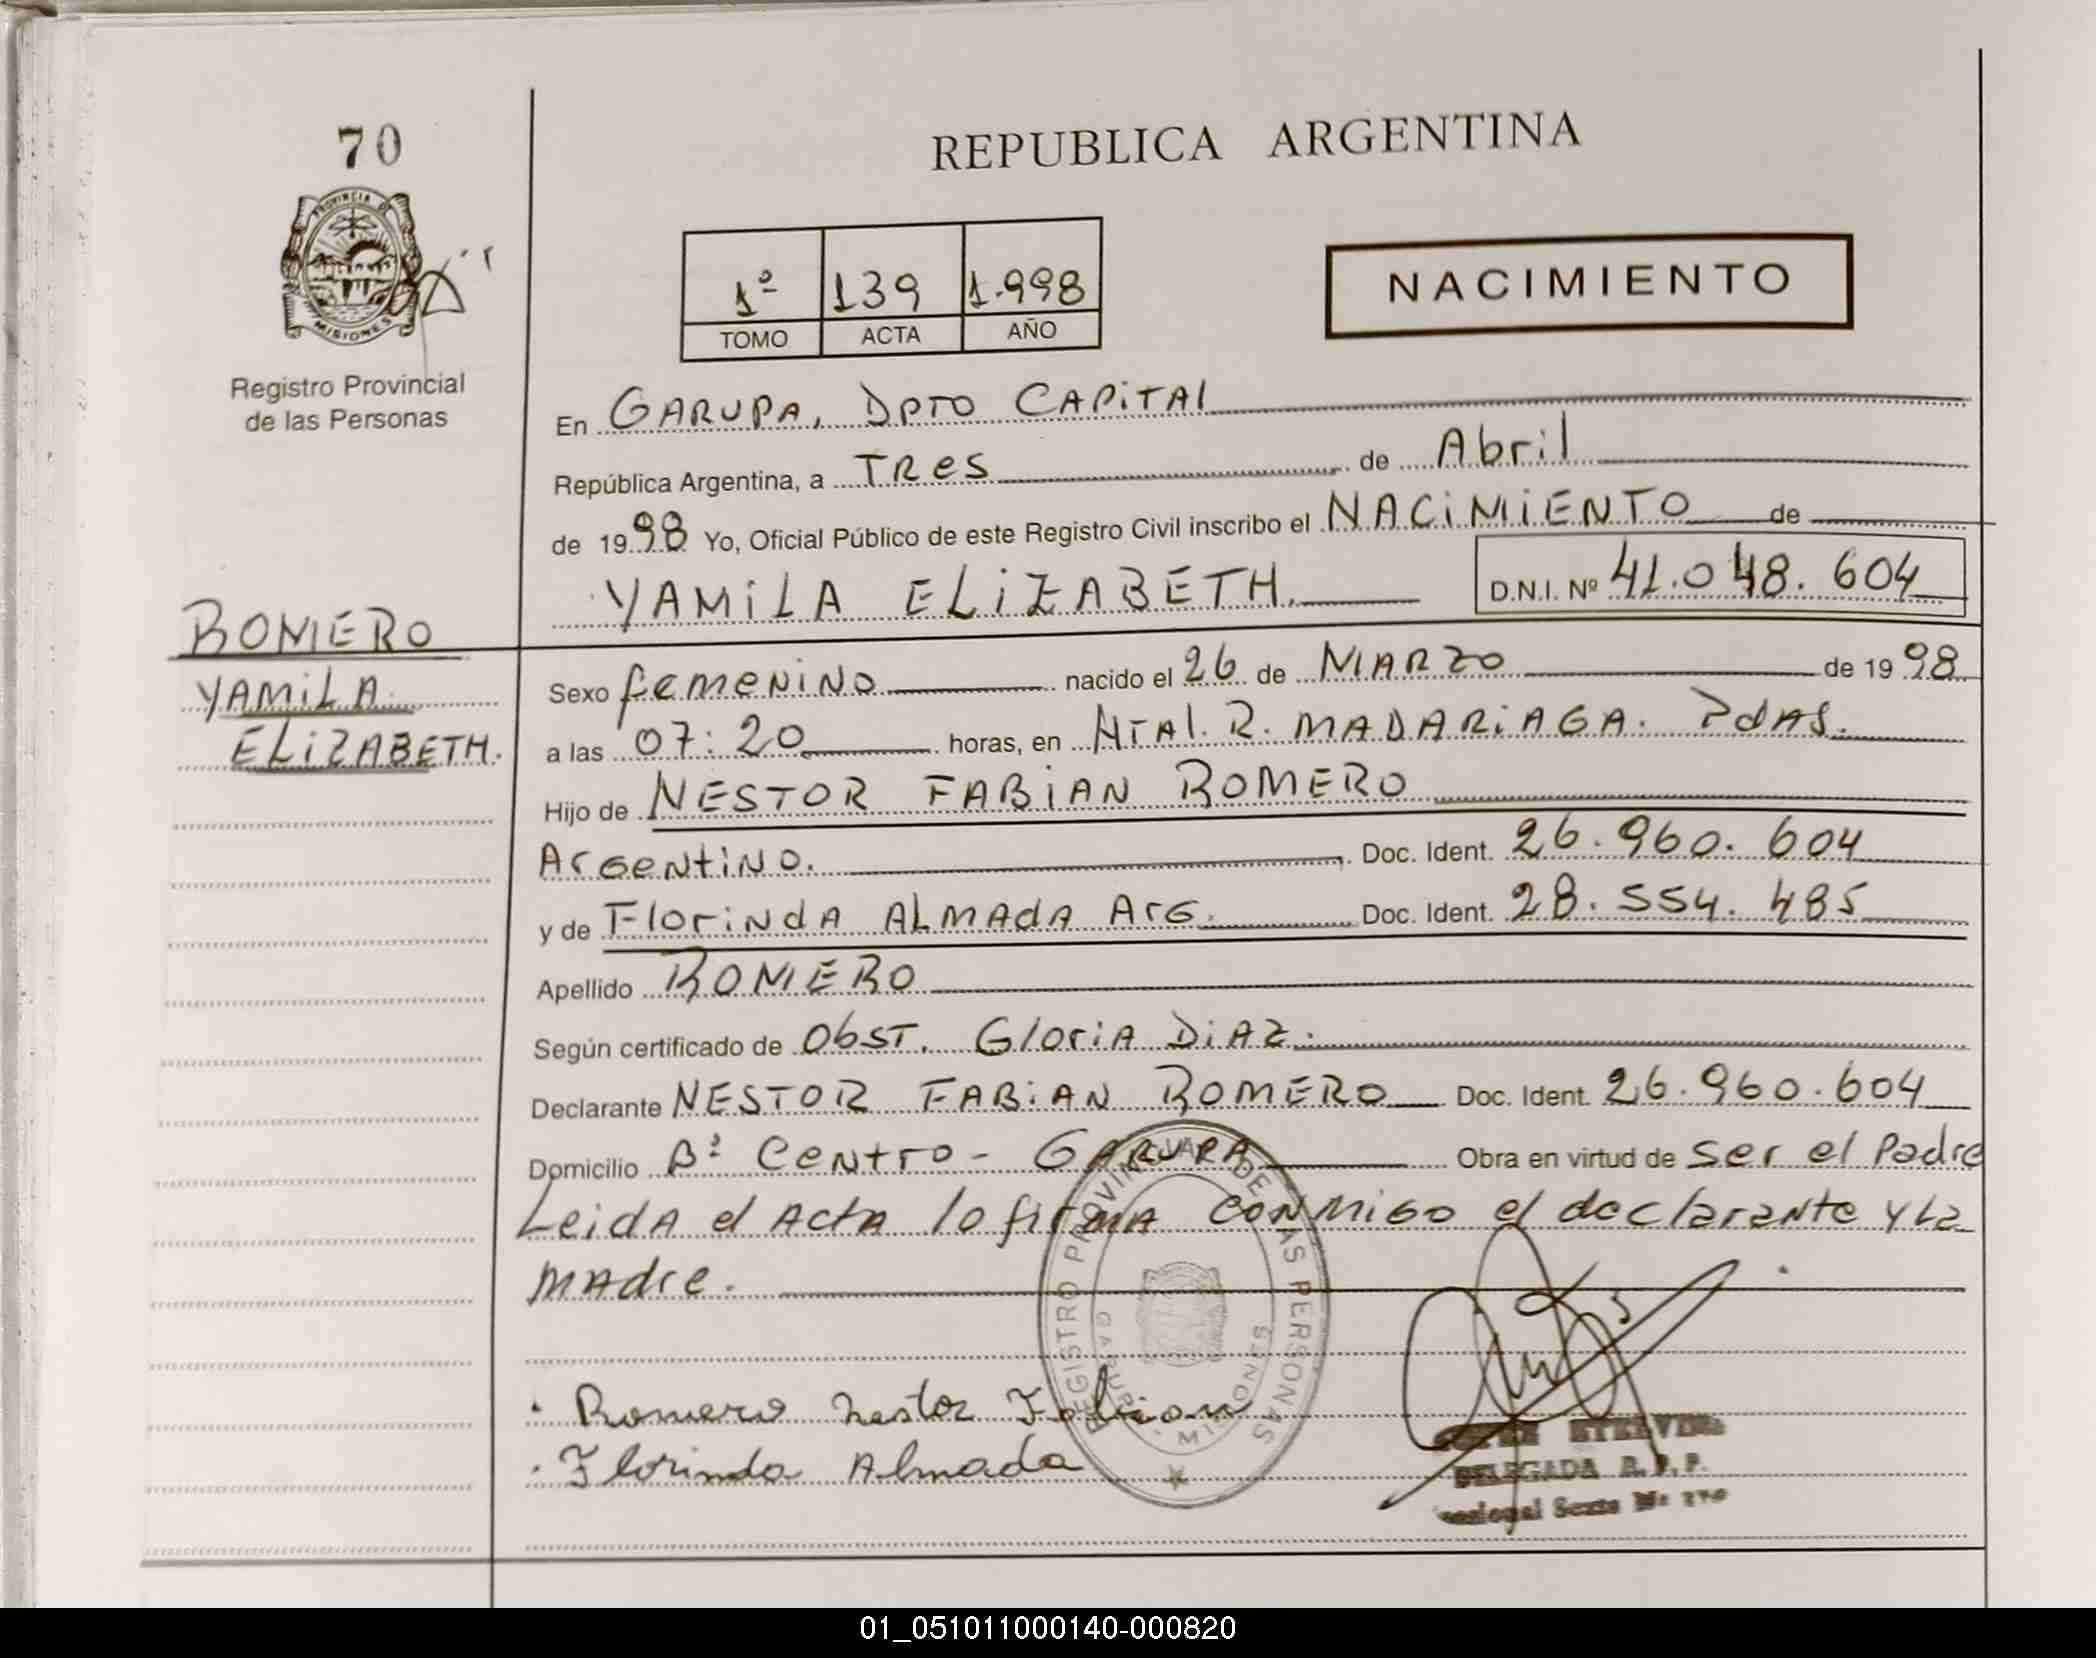 70
PROVINCIA DE
MISIONES
Registro Provincial
de las Personas
REPUBLICA ARGENTINA
1º 139 1.998
TOMO ACTA AÑO
NACIMIENTO
En GARUPA, DPTO CAPITAL
República Argentina, a TRES de Abril
de 1998 Yo, Oficial Público de este Registro Civil inscribo el NACIMIENTO de
YAMILA ELIZABETH. D.N.I. Nº 41.048.604
ROMERO
YAMILA
ELIZABETH.
Sexo femenino nacido el 26 de MARZO de 1998
a las 07:20 horas, en Htal. R. MADARIAGA. PdAS.
Hijo de NESTOR FABIAN ROMERO
Argentino. Doc. Ident. 26.960.604
y de Florinda ALMADA Arg. Doc. Ident. 28.554.485
Apellido ROMERO
Según certificado de Obst. Gloria DIAZ.
Declarante NESTOR FABIAN ROMERO Doc. Ident. 26.960.604
Domicilio Bº Centro - GARUPA Obra en virtud de ser el Padre
Leida el Acta lo firma conmigo el declarante y la
madre.
REGISTRO PROVINCIAL DE LAS PERSONAS
GARUPA - MISIONES
Romero Nestor Fabian
Florinda Almada
DELEGADA R. P. P.
01_051011000140-000820